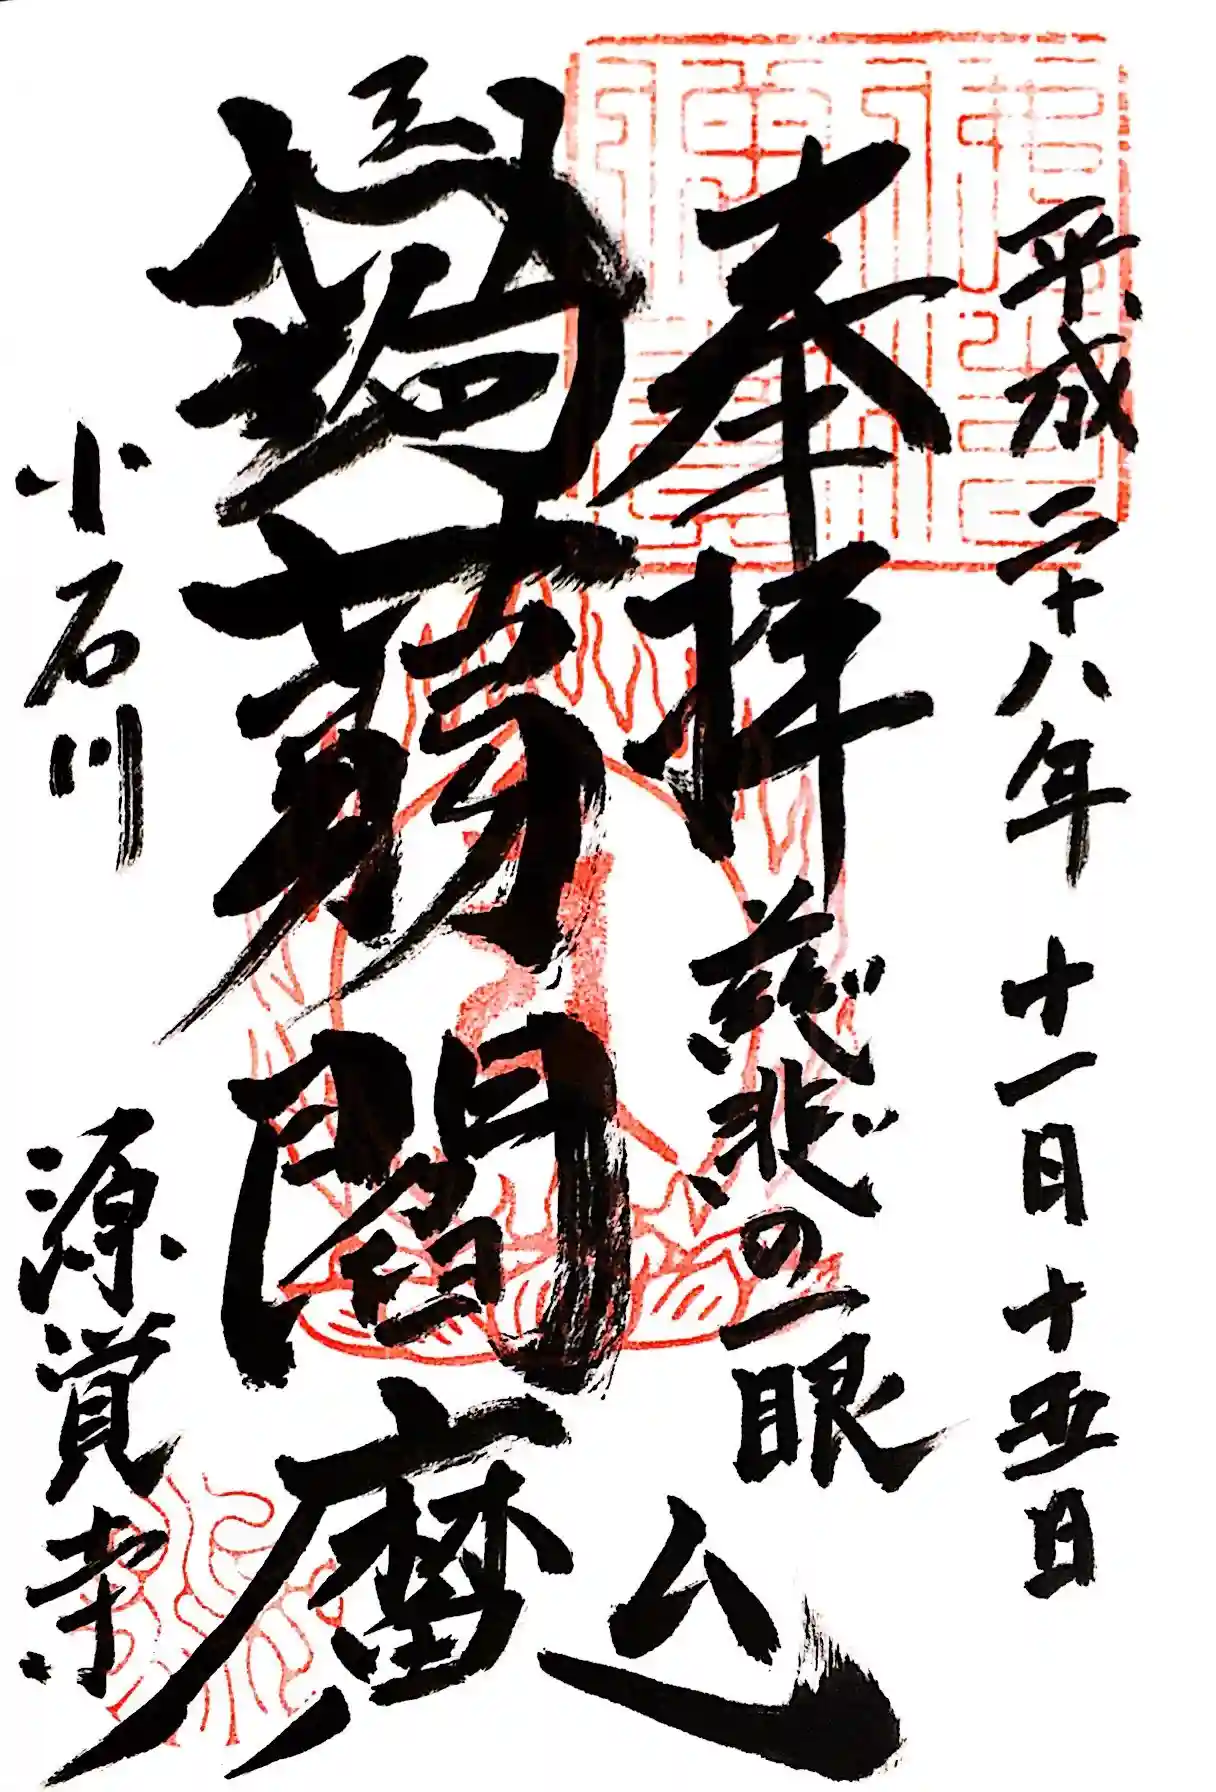 平成二十八年 十一月十五日
奉拝 慈悲の一眼
蒟蒻閻魔
小石川 源覚寺